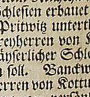 Schlesien erbauet
Pritwitz untert
reyherren von K
äyserlicher Schl
soll. Banckw
herren von Kottu